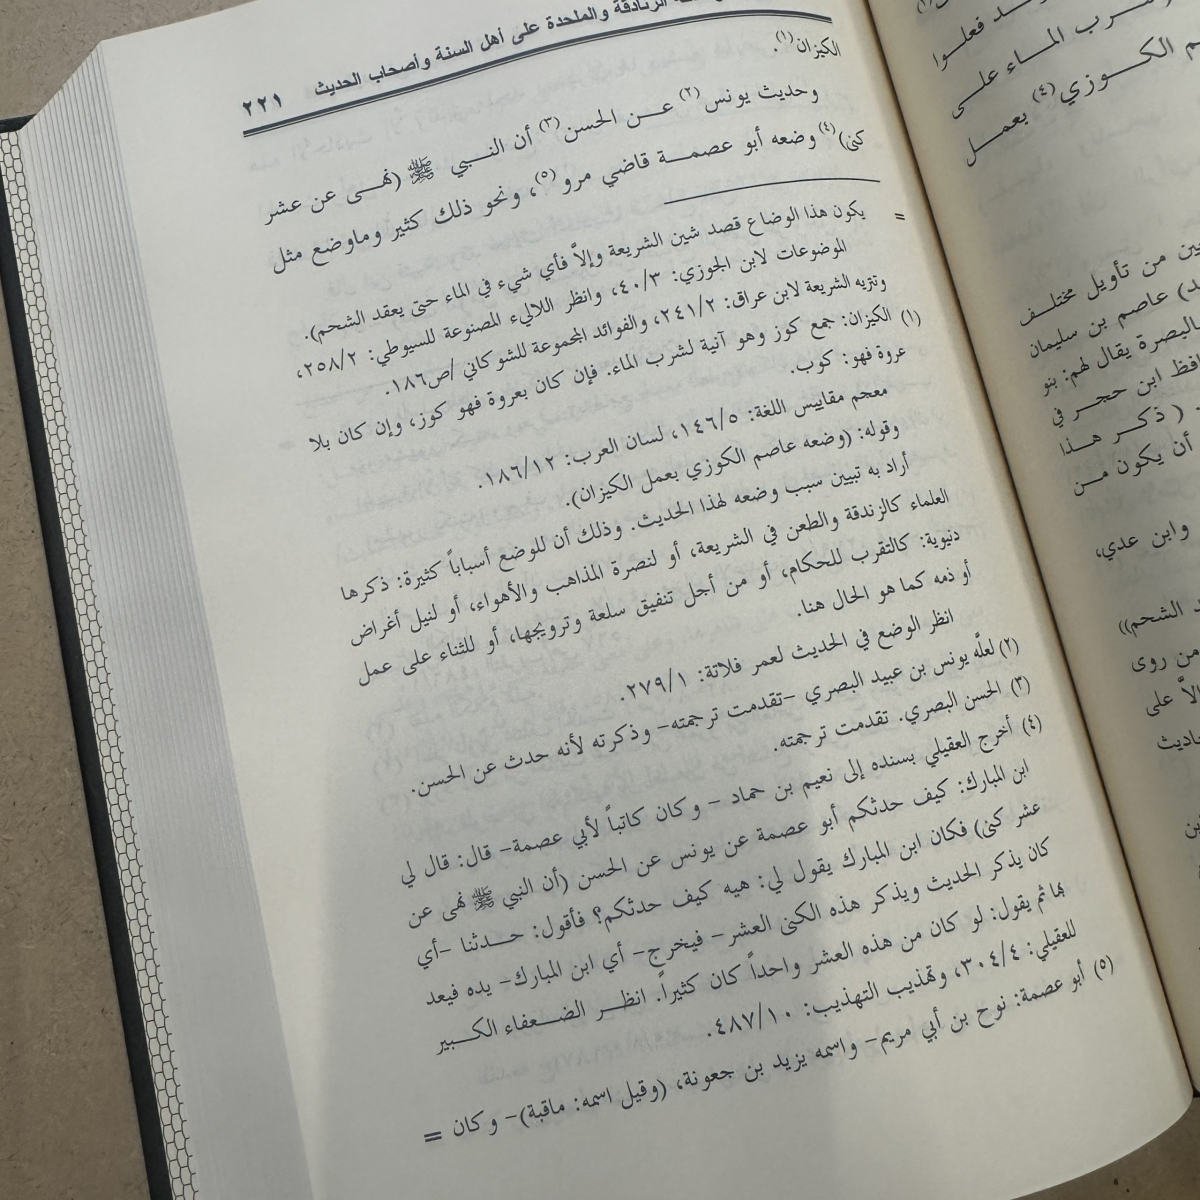 الزنادقة والملحدة على أهل السنة وأصحاب الحديث ٢٢١
الكيزان(١).
وحديث يونس(٢) عن الحسن(٣) أن النبي ﷺ (نهى عن عشر
كنى)(٤) وضعه أبو عصمة قاضي مرو(٥)، ونحو ذلك كثير وماوضع مثل
= يكون هذا الوضاع قصد شين الشريعة وإلاَّ فأي شيء في الماء حتى يعقد الشحم).
الموضوعات لابن الجوزي: ٤٠/٣، وانظر اللاليء المصنوعة للسيوطي: ٢٥٨/٢،
وتنزيه الشريعة لابن عراق: ٢٤١/٢، والفوائد المجموعة للشوكاني /ص١٨٦.
(١) الكيزان: جمع كوز وهو آنية لشرب الماء. فإن كان بعروة فهو كوز، وإن كان بلا
عروة فهو: كوب.
معجم مقاييس اللغة: ١٤٦/٥، لسان العرب: ١٨٦/١٢.
وقوله: (وضعه عاصم الكوزي بعمل الكيزان).
أراد به تبيين سبب وضعه لهذا الحديث. وذلك أن للوضع أسباباً كثيرة: ذكرها
العلماء كالزندقة والطعن في الشريعة، أو لنصرة المذاهب والأهواء، أو لنيل أغراض
دنيوية: كالتقرب للحكام، أو من أجل تنفيق سلعة وترويجها، أو للثناء على عمل
أو ذمه كما هو الحال هنا.
انظر الوضع في الحديث لعمر فلاتة: ٢٧٩/١.
(٢) لعلَّه يونس بن عبيد البصري -تقدمت ترجمته- وذكرته لأنه حدث عن الحسن.
(٣) الحسن البصري. تقدمت ترجمته.
(٤) أخرج العقيلي بسنده إلى نعيم بن حماد - وكان كاتباً لأبي عصمة- قال: قال لي
ابن المبارك: كيف حدثكم أبو عصمة عن يونس عن الحسن (أن النبي ﷺ نهى عن
عشر كنى) فكان ابن المبارك يقول لي: هيه كيف حدثكم؟ فأقول: حدثنا -أي
كان يذكر الحديث ويذكر هذه الكنى العشر- فيخرج- أي ابن المبارك- يده فيعد
بها ثم يقول: لو كان من هذه العشر واحداً كان كثيراً. انظر الضعفاء الكبير
للعقيلي: ٣٠٤/٤، وتهذيب التهذيب: ٤٨٧/١٠.
(٥) أبو عصمة: نوح بن أبي مريم- واسمه يزيد بن جعونة، (وقيل اسمه: ماقبة)- وكان =
فعلوا
شرب الماء على
الكوزي(٤) بعمل
من تأويل مختلف
عاصم بن سليمان
البصرة يقال لهم: بنو
ابن حجر في
( ذكر هذا
أن يكون من
وابن عدي،
الشحم))
من روى
إلاَّ على